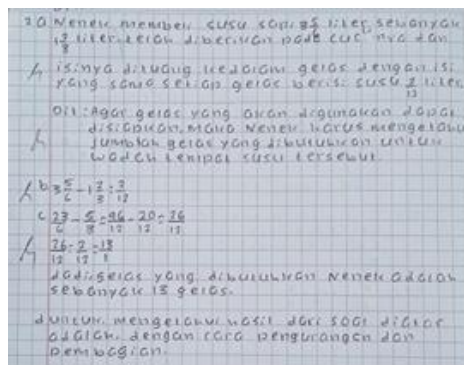 2 a Nenek membeli susu sapi 3 5/6 liter, sebanyak
1 2/3 liter telah diberikan pada cucunya dan
isinya dituang kedalam gelas dengan isi
yang sama setiap gelas berisi susu 2/12 liter.
Dit : Agar gelas yang akan digunakan dapat
disiapkan, maka nenek harus mengetahui
jumlah gelas yang dibutuhkan untuk
wadah tempat susu tersebut.
b 3 5/6 - 1 2/3 : 2/12
c 23/6 - 5/3 = 46/12 - 20/12 = 26/12
26/12 : 2/12 = 13/1
Jadi : gelas yang dibutuhkan Nenek adalah
sebanyak 13 gelas.
d untuk mengetahui hasil dari soal diatas
adalah dengan cara pengurangan dan
pembagian.